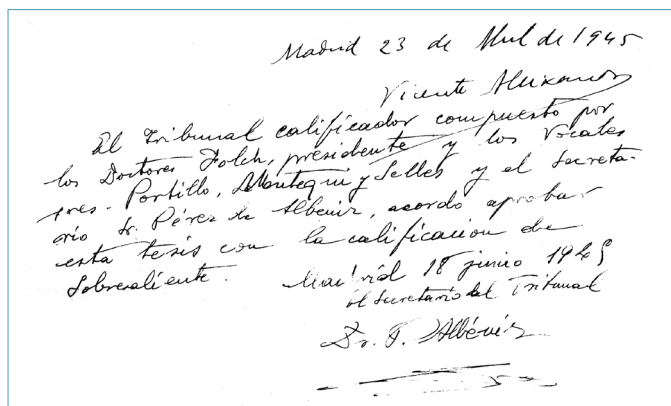 Madrid 23 de Abril de 1945
Vicente Aleixandre
El Tribunal calificador compuesto por
los Doctores Folch, presidente y los Vocales
sres. Portillo, Montequi y Selles y el Secreta-
rio Sr. Pérez de Albéniz, acordo aprobar
esta tesis con la calificacion de
Sobresaliente.
Madrid 18 junio 1945
El Secretario del Tribunal
Dr. P. Albéniz